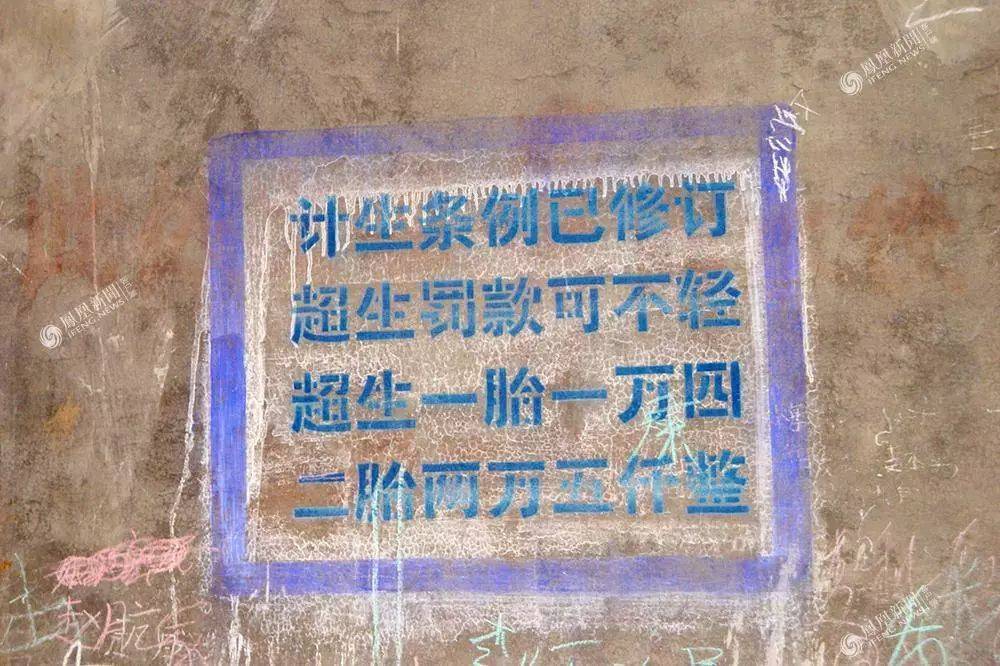 计生条例已修订
超生罚款可不轻
超生一胎一万四
二胎两万五仟整
鳳凰新聞
IFENG NEWS
鳳凰新聞
IFENG NEWS
鳳凰新聞
IFENG NEWS